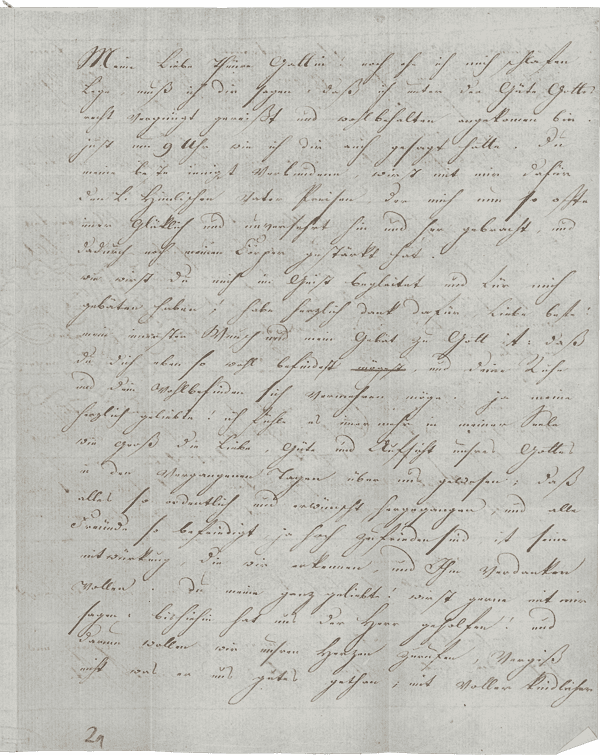 Meine Liebe Theure Gattin! noch ehe ich mich schlafen
Lege muß ich dir sagen, daß ich unter der Güte Gottes
recht vergnügt gereißt und wohlbehalten angekommen bin.
just um 9 Uhr wie ich dir auch gesagt hatte. Du
meine beste innigst Verbundene wirst mit mir dafür
den L. Himlischen Vater Preisen der mich nun so offte
imer Glüklich und unversehrt hin und her gebracht, und
dadurch noch meinen Körper gestärkt hat.
wie wirst Du mich im Geist begleitet und für mich
gebäten haben; habe herzlich dank dafür Liebe beste!
mein innersten Wunsch und mein Gebät zu Gott ist: daß
du dich eben so wohl befindest und Deine Ruhe
und dein Wohlbefinden sich vermehren möge. ja meine
herzlich geliebte! ich fühle es imer mehr in meiner Seele
wie groß die Liebe, Güte und Aufsicht unsres Gottes
in den Vergangenen Tagen über uns gewesen; daß
alles so ordentlich und erwünscht hergegangen, und alle
Freunde so befriedigt, ja hoch zufrieden sind ist seine
mitwürkung, die wir erkennen, und Ihm Verdanken
wollen. Du meine ganz geliebte! wirst gerne mit mir
sagen: bishiehin hat uns der Herr geholfen! und
darum wollen wir unsren Herzen zurufen, Vergiß
nicht was er uns gutes gethan; mit voller kindlicher
2a